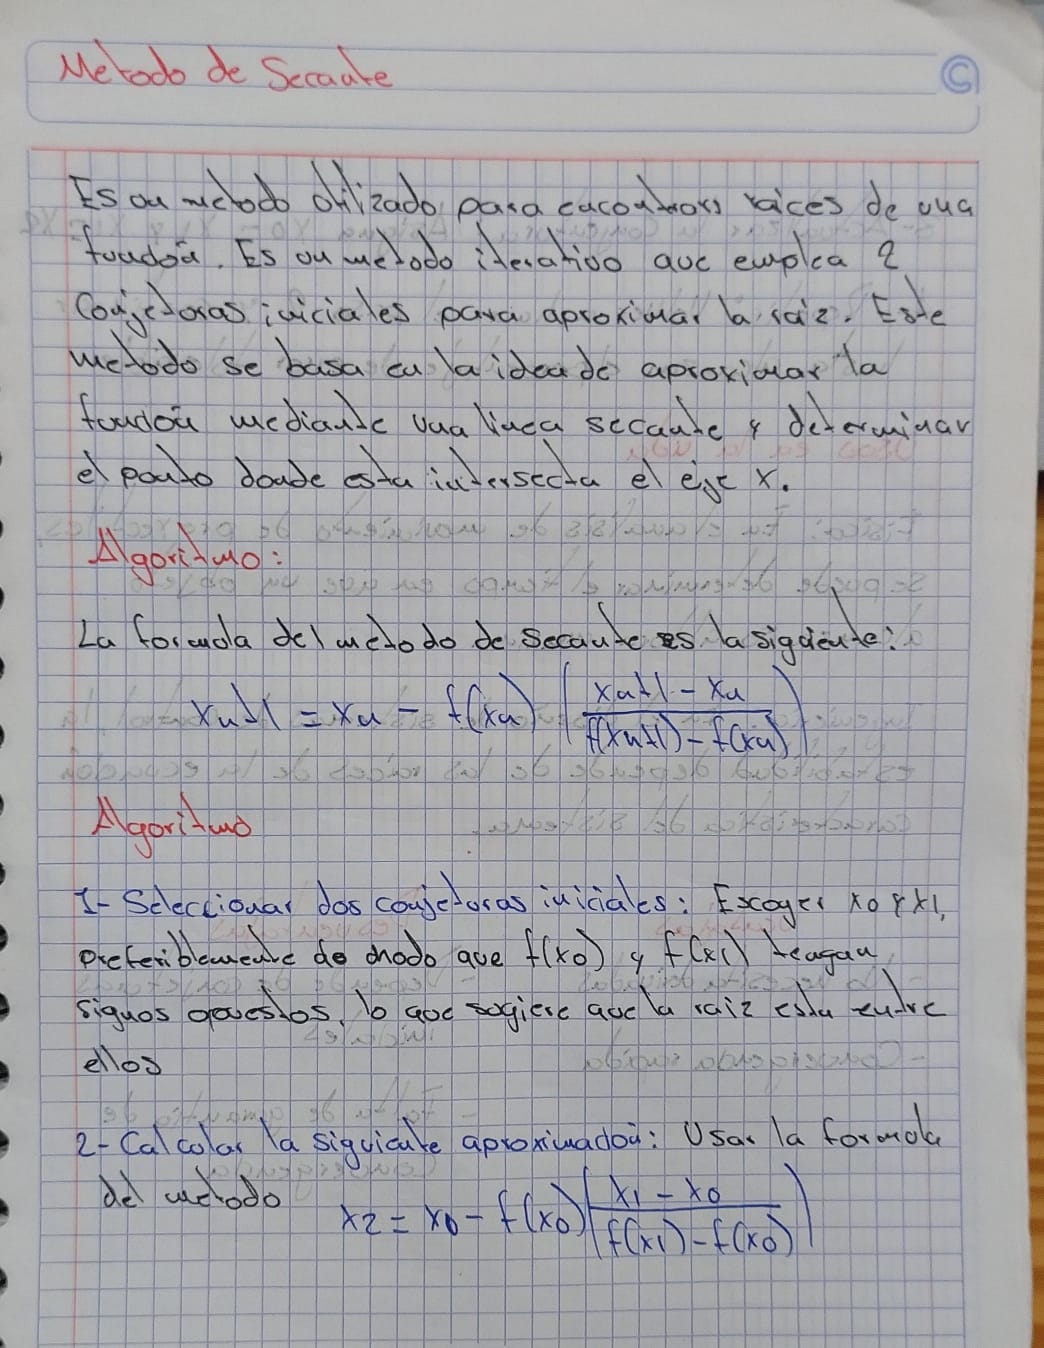 Metodo de Secante
Es un metodo utilizado para encontrar raices de una
función. Es un metodo iterativo que emplea 2
Conjeturas iniciales para aproximar la raiz. Este
metodo se basa en la idea de aproximar la
función mediante una linea secante y determinar
el punto donde esta intersecta el eje x.
Algoritmo:
La formula del metodo de secante es la siguiente:
xn+1 = xn - f(xn) (xn+1 - xn / f(xn+1) - f(xn))
Algoritmo
1- Seleccionar dos conjeturas iniciales: Escoger x0 y x1,
preferiblemente de modo que f(x0) y f(x1) tengan
signos opuestos, lo que sugiere que la raiz esta entre
ellos
2- Calcular la siguiente aproximación: Usar la formula
del metodo x2 = x0 - f(x0) (x1 - x0 / f(x1) - f(x0))